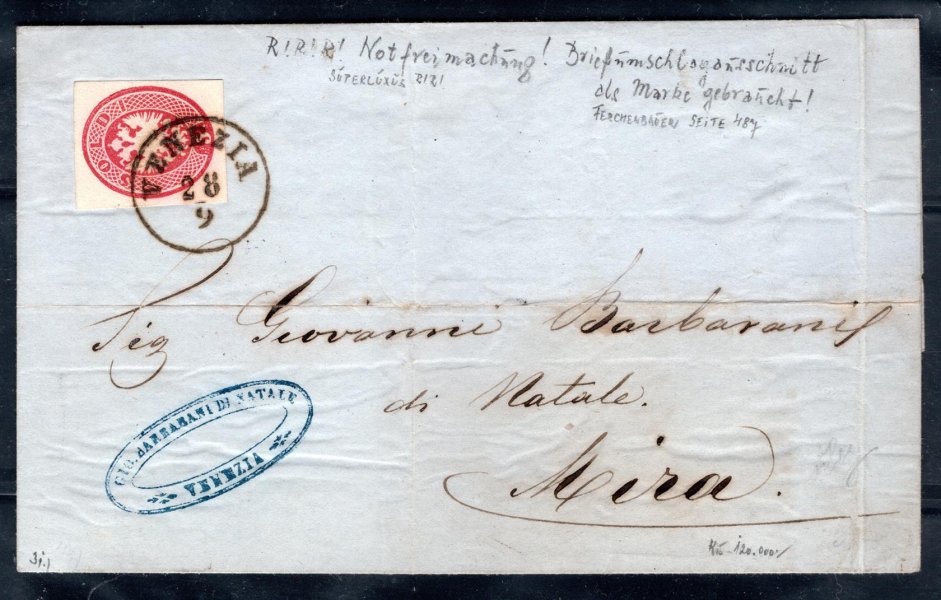 R!R!R! Notfreimachung! Briefumschlagausschnitt
SUPERLUXUS R!R!
als Marke gebraucht!
FERCHENBAUER SEITE 487
SOLDI
VENEZIA
28
9
Sig Giovanni Barbarani
di Natale.
Mira.
GIO. BARBARANI DI NATALE
VENEZIA
3i.)
Kč 120.000.-